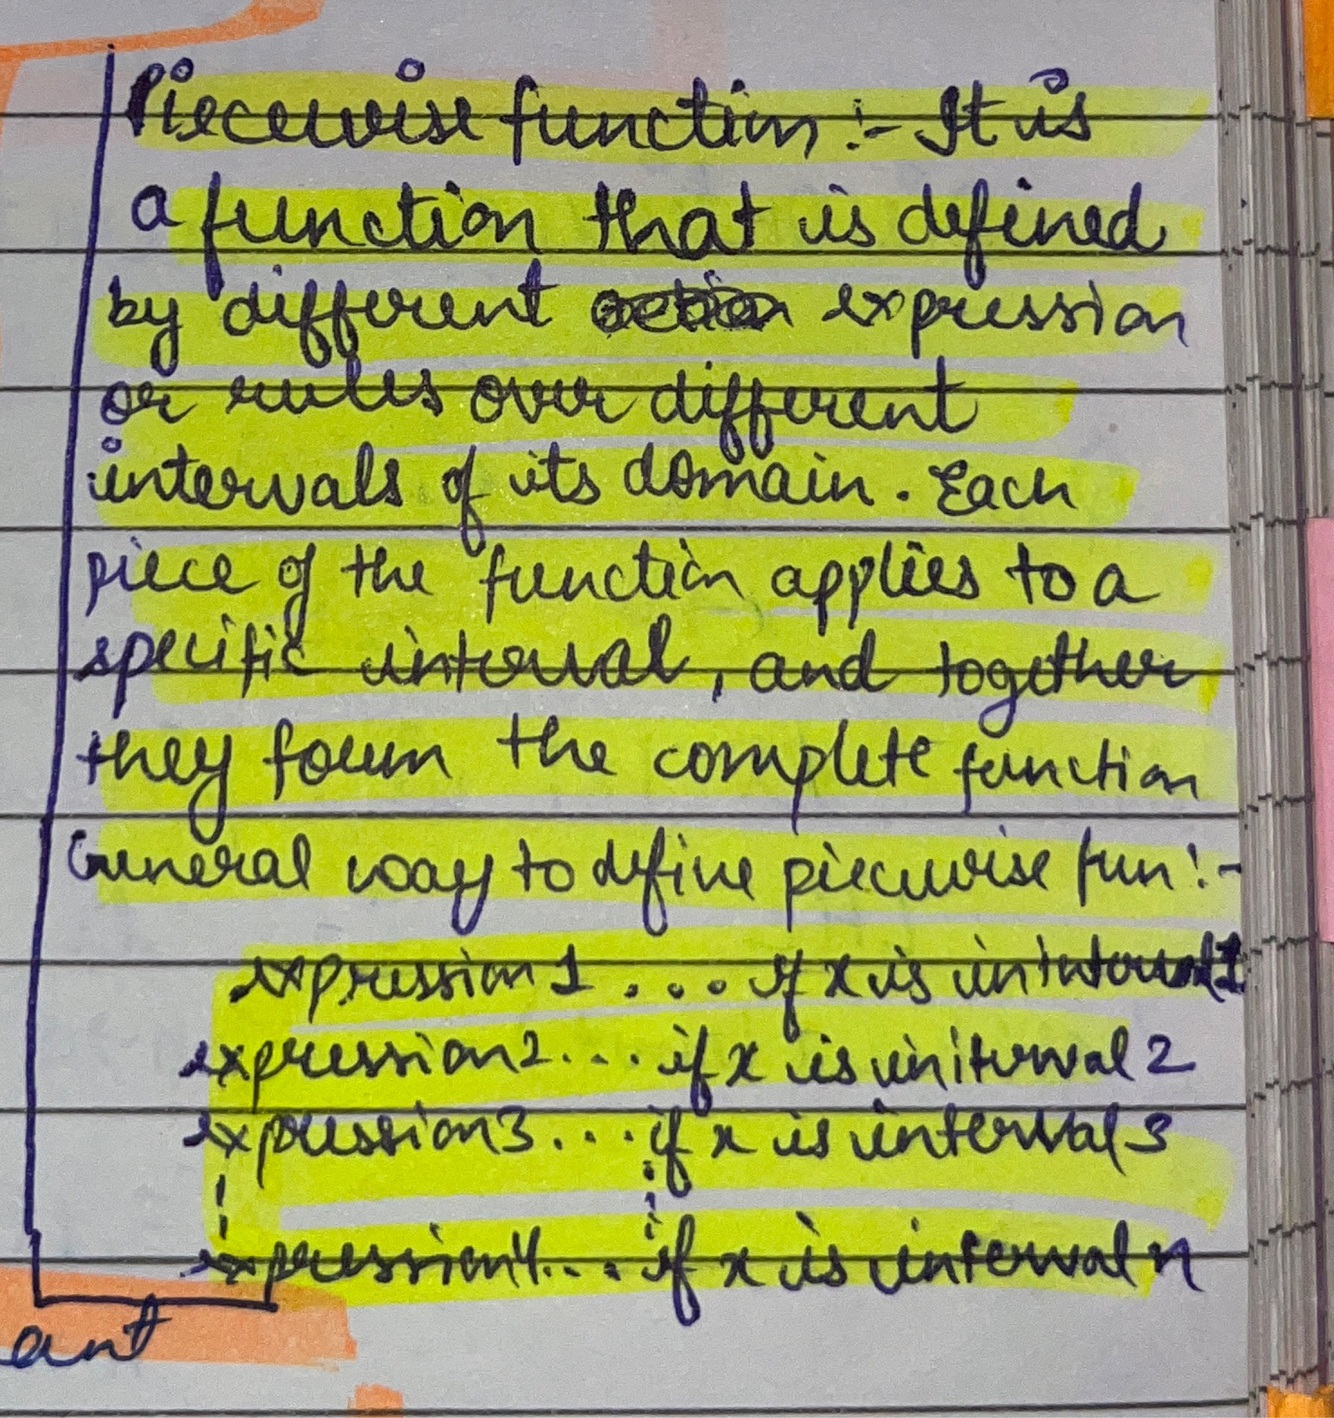 Piecewise function :- It is
a function that is defined
by different expression
or rules over different
intervals of its domain. Each
piece of the function applies to a
specific interval, and together
they form the complete function
General way to define piecewise fun :-
expression 1 ... if x is in interval 1
expression 2 ... if x is in iterval 2
expression 3 ... if x is interval 3
expression ... if x is interval n
ant